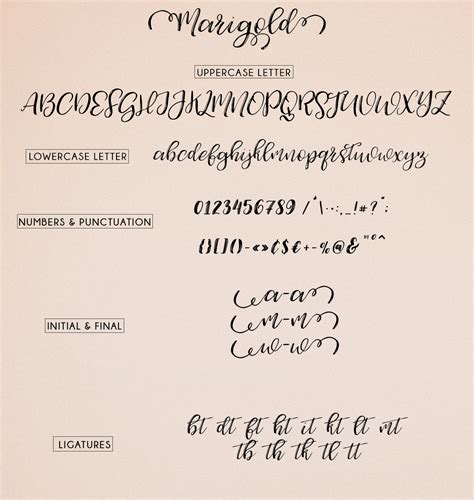 Marigold
UPPERCASE LETTER
ABCDEFGHIJKLMNOPQRSTUVWXYZ
LOWERCASE LETTER
abcdefghijklmnopqrstuvwxyz
NUMBERS & PUNCTUATION
0123456789 / * | \ - : . , _ ! # ? " ;
{}[]()-«»¢$€+-%@& " ° ^
INITIAL & FINAL
a-a
m-m
w-w
LIGATURES
bt dt ft ht it kt lt mt
tb th tk tl tt